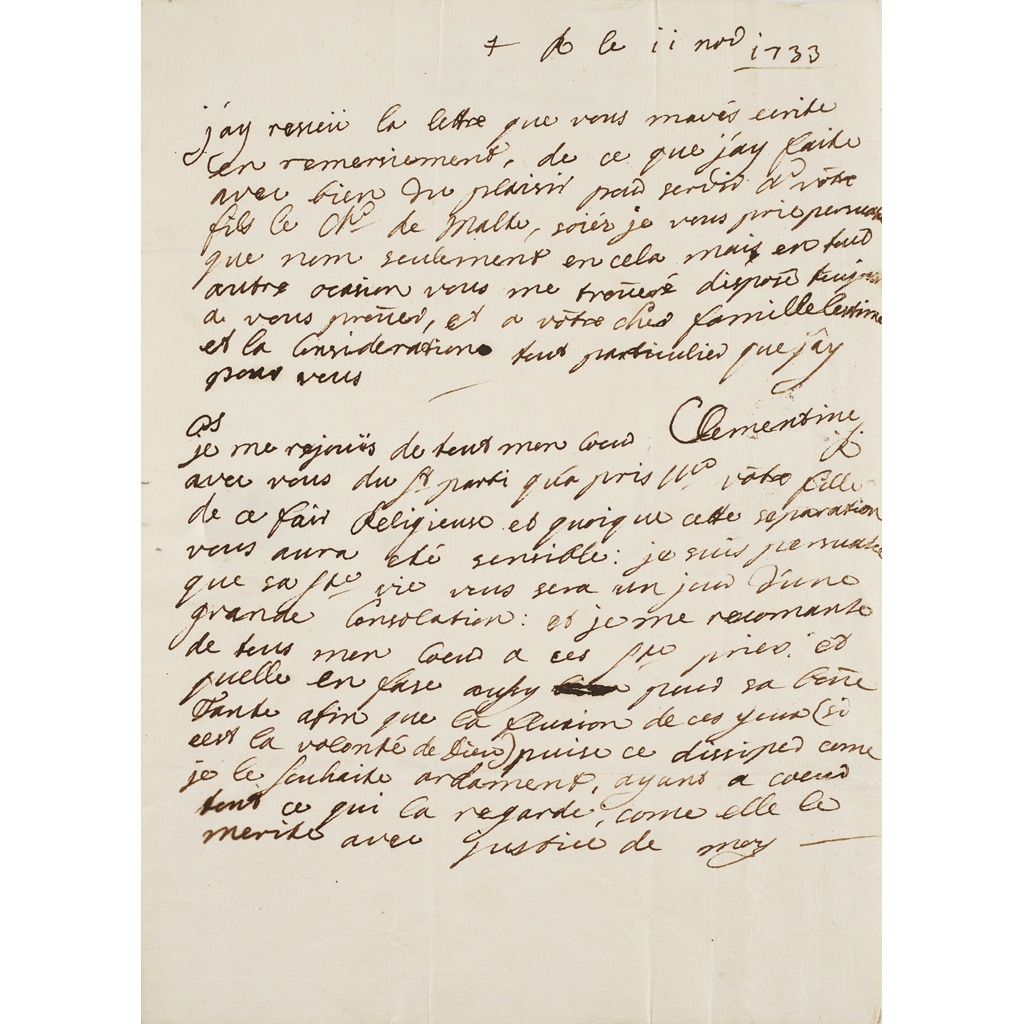 + R le 11 nov 1733
j'ay reseu la lettre que vous mavés ecrite
en remersiement, de ce que j'ay faite
avec bien du plaisir pour servir a votre
fils le Chr de Malte, soiés je vous prie persuade
que nom seulement en cela mais en tout
autre ocasion vous me trouveré disposé toujour
a vous prouver, et a vôtre cher famille lestime
et la Consideration tout particulier que j'ay
pour vous
Clementine
R
PS
je me rejouïs de tout mon Coeur
avec vous du St parti qu'a pris votre fille
de ce fair Religieuse et quoique cette separation
vous aura eté sensible: je suis persuade
que sa Ste vie vous sera un jour d'une
grande Consolation: et je me recomante
de tous mon Coeur a ces Ste prier: et
quelle en fase ausy pour sa bone
Tante afin que la fluxion de ces yeux (si
cest la volonté de Dieu) puise ce dissiper come
je le souhaite ardament, ayant a coeur
tout ce qui la regarde, come elle le
merite avec justice de moy